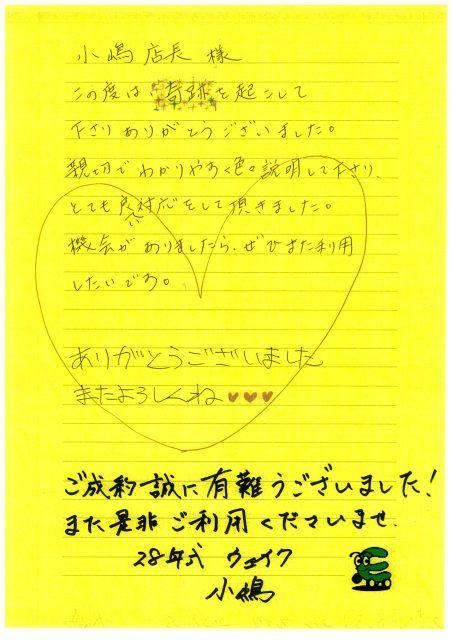 小嶋店長 様
この度は奇跡を起こして
下さりありがとうございました。
親切でわかりやすく色々説明して下さり、
とても良い対応をして頂きました。
機会がありましたら、ぜひまた利用
したいです。
ありがとうございました
またよろしくね
ご成約誠に有難うございました!
また是非ご利用くださいませ.
28年式 ウェイク
小嶋